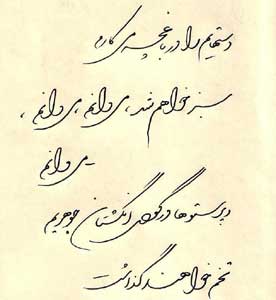 دستهایم را در باغچه می کارم
سبز خواهم شد ، می دانم ، می دانم ،
می دانم
و پرستوها در گودی انگشتان جوهریم
تخم خواهند گذاشت